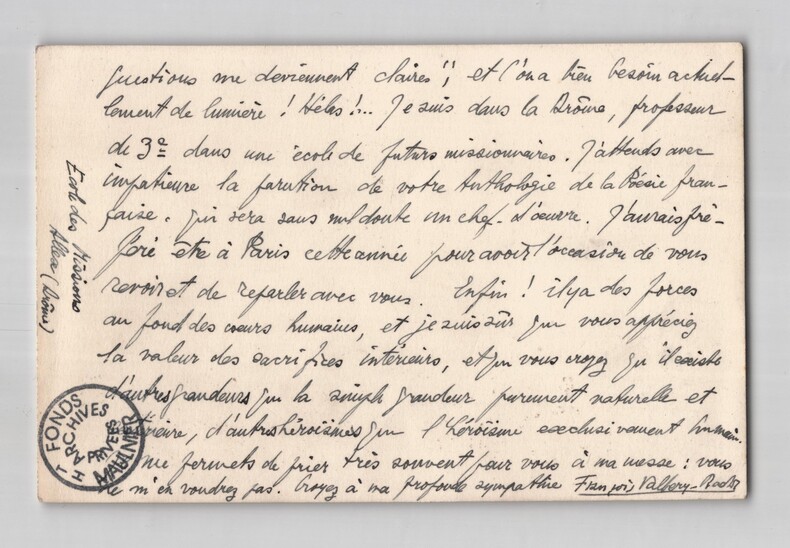 questions me deviennent claires", et l'on a bien besoin actuel-
lement de lumière ! Hélas !... Je suis dans la Drôme, professeur
de 3e dans une école de futurs missionnaires. J'attends avec
impatience la parution de votre Anthologie de la Poésie fran-
çaise. qui sera sans nul doute un chef-d'œuvre. J'aurais pré-
féré être à Paris cette année pour avoir l'occasion de vous
revoir et de reparler avec vous. Enfin ! il y a des forces
au fond des cœurs humains, et je suis sûr que vous appréciez
la valeur des sacrifices intérieurs, et que vous croyez qu'il existe
d'autres grandeurs que la simple grandeur purement naturelle et
d'autres héroïsmes que l'héroïsme exclusivement humain.
me permets de prier très souvent pour vous à ma messe : vous
ne m'en voudrez pas. Croyez à ma profonde sympathie François
École des Missions
Allex (Drôme)
FONDS
ARCHIVES
PRIVÉES
MAULNIER